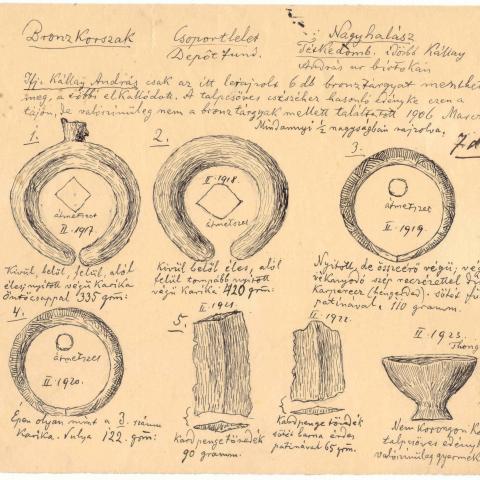 Bronzkorszak
Csoportlelet
Depôt fund.
Nagyhalász
Telekdomb. idősb Kállay
András úr birtokán
Ifj. Kállay András csak az itt lerajzolt 6 db bronztárgyat menthette
meg, a többi elkallódott. A talpcsöves csészéhez hasonló edényke ezen a
tájon, de valószinűleg nem a bronztárgyak mellett találtatott 1906
Mindannyi ½ nagyságban rajzolva.
1.
átmetszet
II. 1917.
Kivül, belöl, felül, alól
éles, nyitott végü Karika
öntöcsappal 335 grm:
2.
II. 1918.
átmetszet
Kivül belöl éles, alól
felül tompább nyitott
végü Karika 420 grm:
3.
átmetszet
II. 1919.
Nyitott, de összeérő végü; vég
vékonyodó szép recézéssel
Karperecz (hengerded). sötét
patinával. 110 gramm.
4.
átmetszet
II. 1920.
Épen olyan mint a 3. számu
Karika. Sulya 122. grm:
5.
II. 1921.
Kardpenge töredék
90 gramm.
II. 1922.
Kardpenge töredék
sötét barna érdes
patinával 65 grm:
II. 1923.
Thong
Nem Korongon K
talpcsöves edényk
valószinüleg gyermek